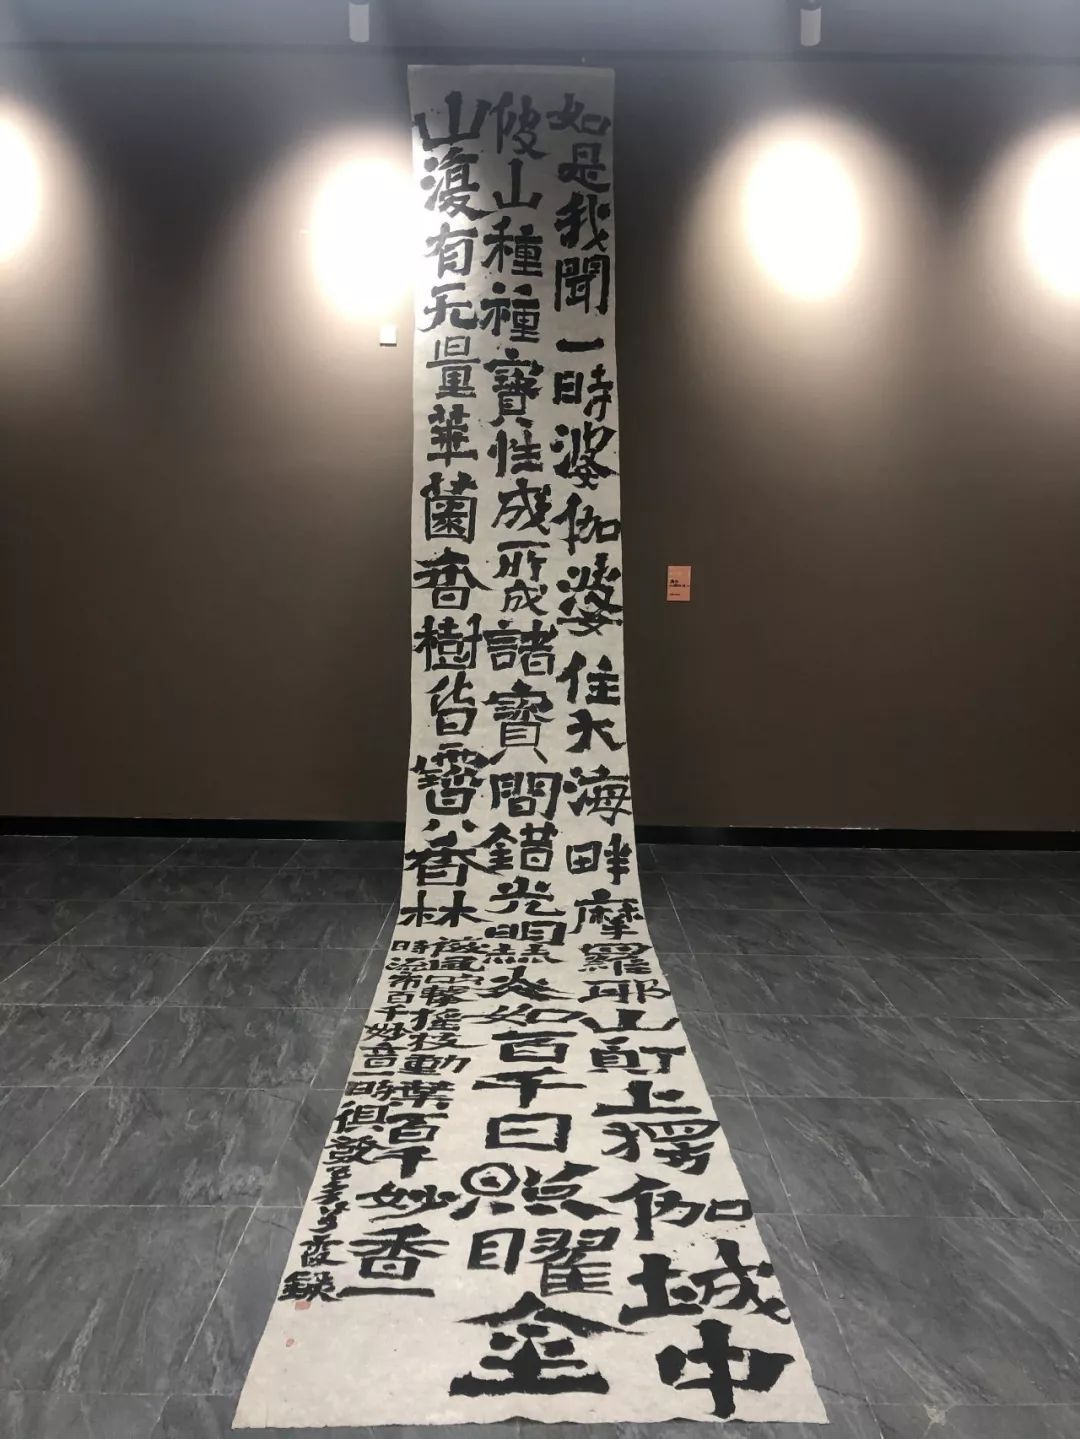 如是我聞一時婆伽婆住大海畔摩羅耶山頂上楞伽城中
彼山種種寶性成所成諸寶間錯光明赫炎如百千日照曜金
山復有无量華園香樹皆寶香林
微風吹擊搖枝動葉百千妙香一
時流布百千妙音一時俱發